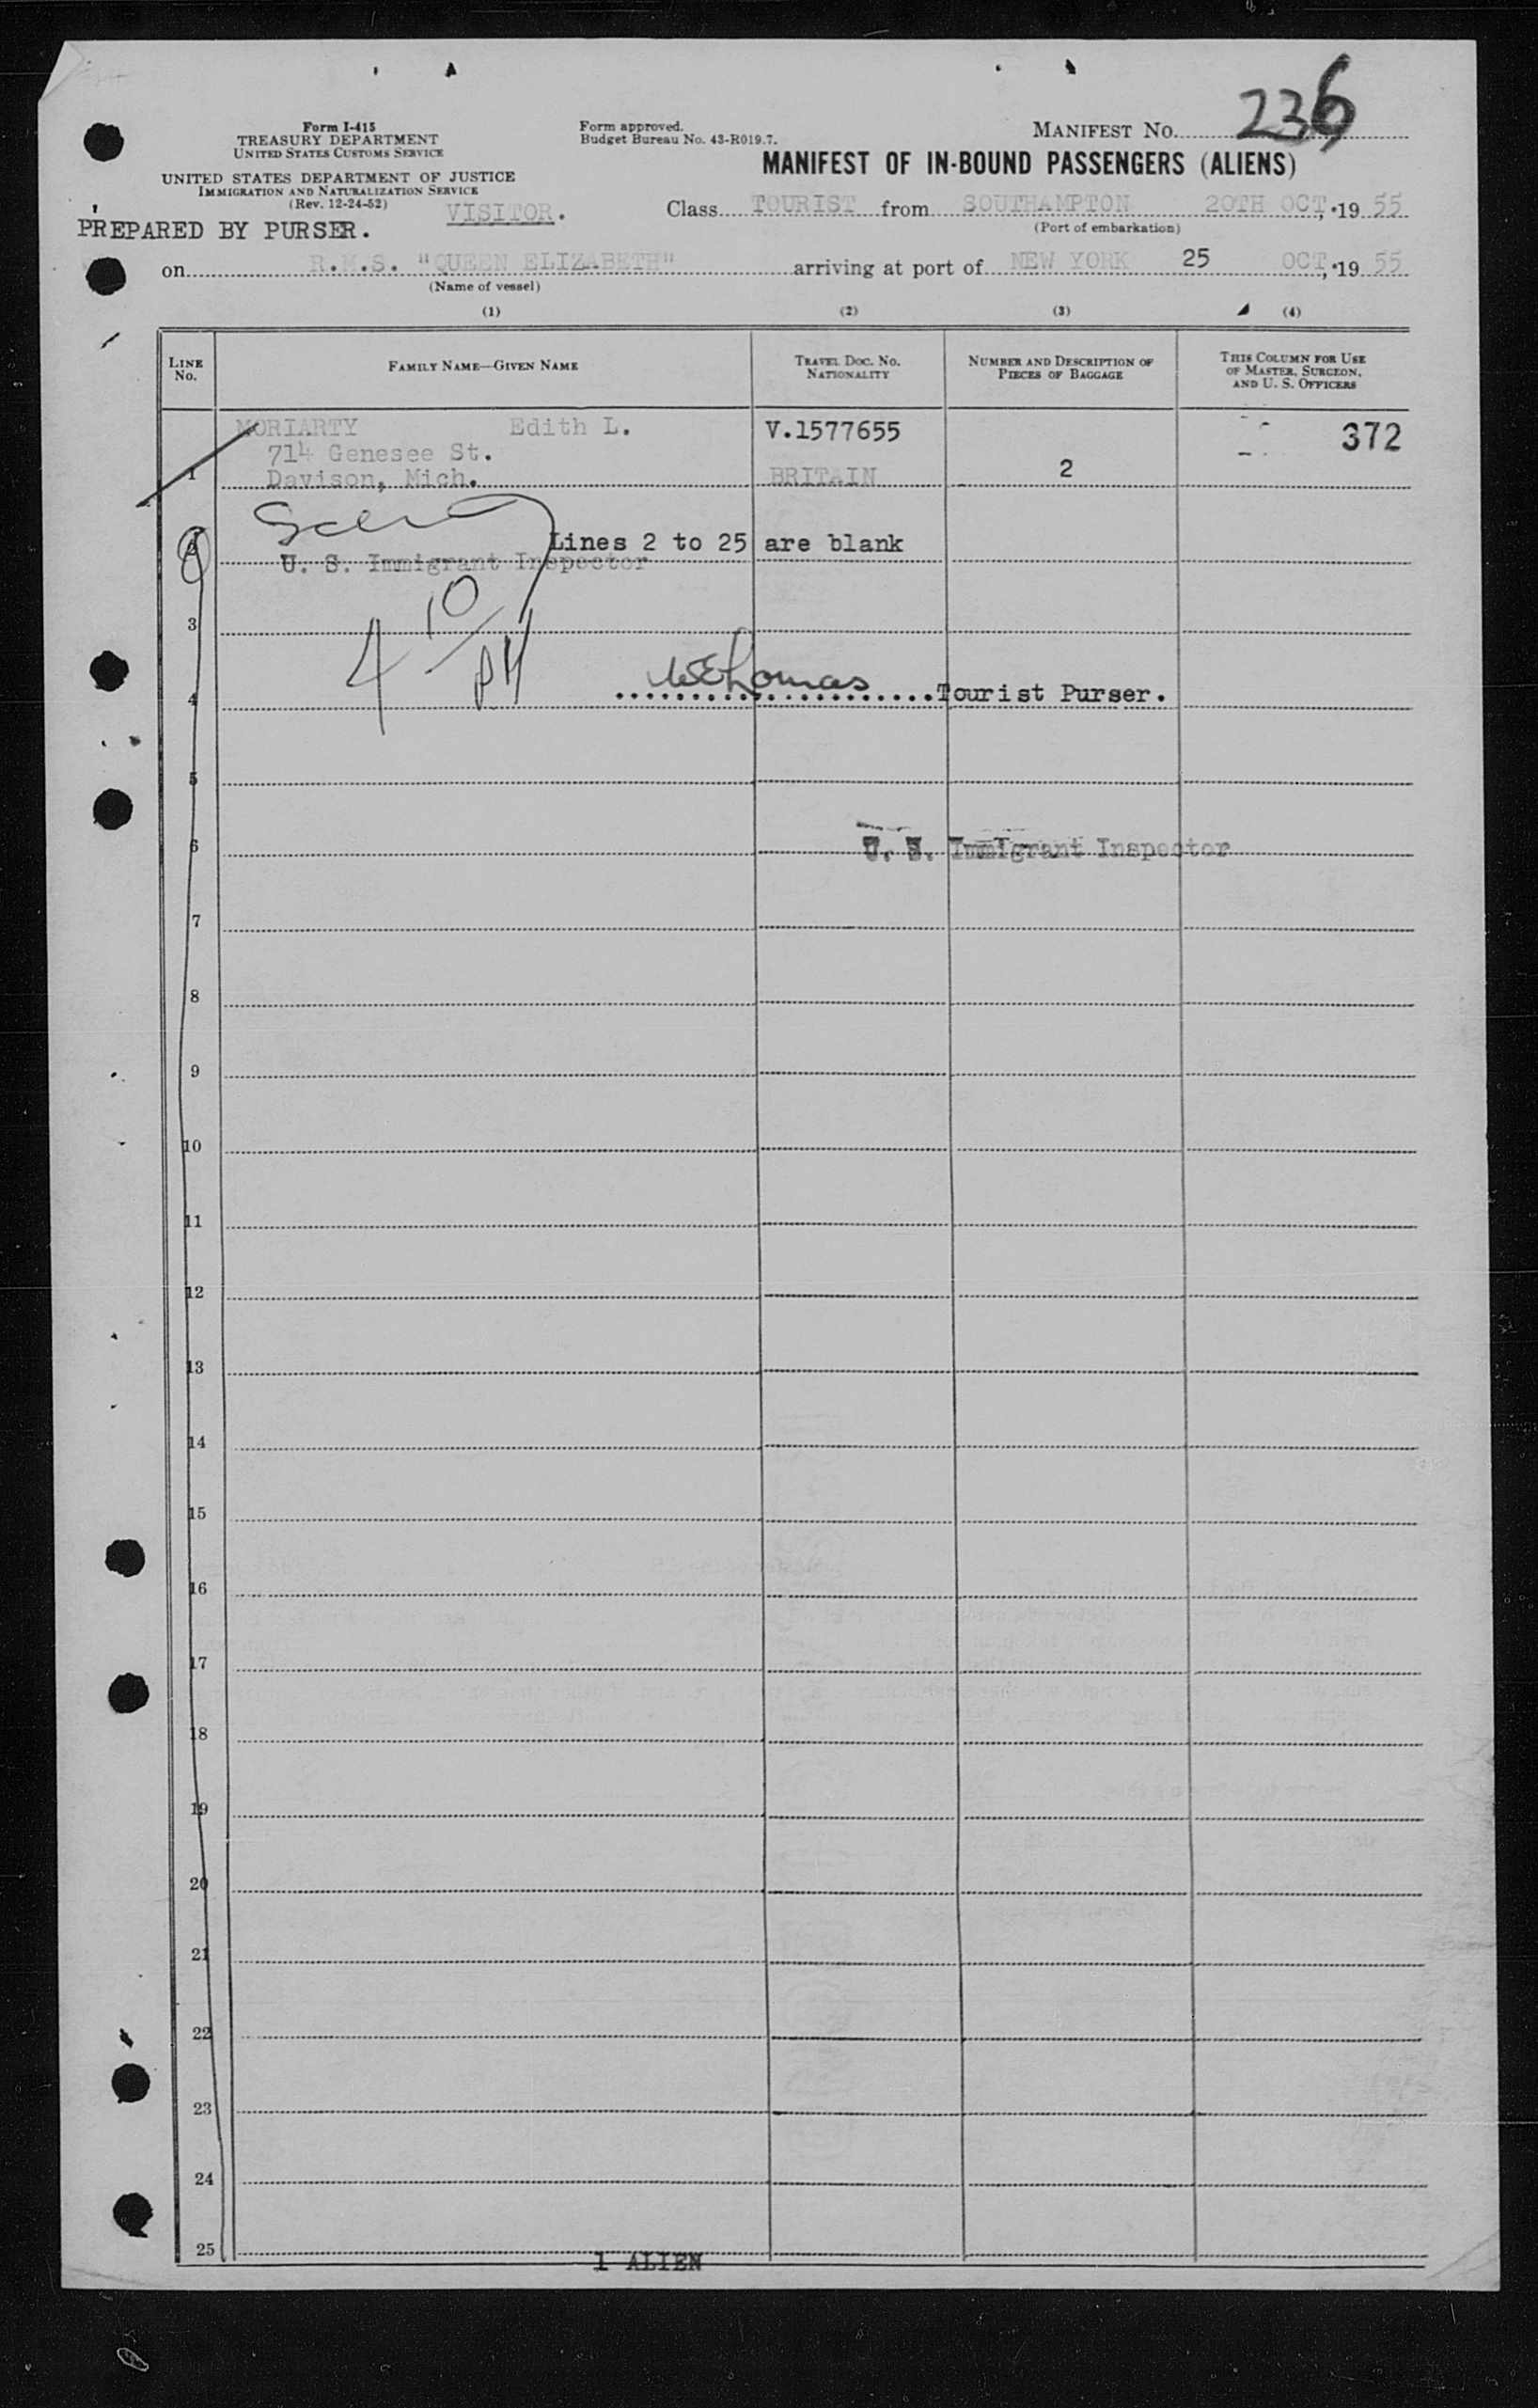 Form I-415
TREASURY DEPARTMENT
UNITED STATES CUSTOMS SERVICE
UNITED STATES DEPARTMENT OF JUSTICE
IMMIGRATION AND NATURALIZATION SERVICE
(Rev. 12-24-52)
Form approved.
Budget Bureau No. 43-R019.7.
MANIFEST NO. 236
MANIFEST OF IN-BOUND PASSENGERS (ALIENS)
VISITOR.
PREPARED BY PURSER.
Class TOURIST from SOUTHAMPTON 20TH OCT, 19 55
(Port of embarkation)
on R.M.S. "QUEEN ELIZABETH" arriving at port of NEW YORK 25 OCT, 19 55
(Name of vessel)
(1) (2) (3) (4)
LINE No. FAMILY NAME—GIVEN NAME TRAVEL DOC. NO. NATIONALITY NUMBER AND DESCRIPTION OF PIECES OF BAGGAGE THIS COLUMN FOR USE OF MASTER, SURGEON, AND U. S. OFFICERS
MORIARTY Edith L. V.1577655 372
714 Genesee St.
1 Davison, Mich. BRITAIN 2
Lines 2 to 25 are blank
2 U. S. Immigrant Inspector
3
4 10/PM
4 Tourist Purser.
5
6 U. S. Immigrant Inspector
7
8
9
10
11
12
13
14
15
16
17
18
19
20
21
22
23
24
25
1 ALIEN